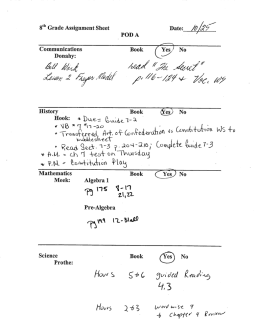 8th Grade Assignment Sheet Date: 10/25
POD A
Communications Book Yes No
Domsby:
Bell Work Read "The
Lesson 2 Frayer Model p. 116-124 & Voc. WS
History Book Yes No
Hook: * Due = Guide 7-2
* VB # 7 #13-20
* Transferred Art. of Confederation vs Constitution WS to
* Read Sect. 7-3 p. 204-210; Complete Guide 7-3
* A.H. - Ch 7 test on Thursday
* P.N. - Constitution Play
Mathematics Book Yes No
Meek: Algebra 1
pg 175 8-17
21,22
Pre-Algebra
pg 199 12-31 all
Science Book Yes No
Prothe:
Hours 5+6 guided Reading
4.3
Hours 2+3 wordwise 4
+ Chapter 4 Review